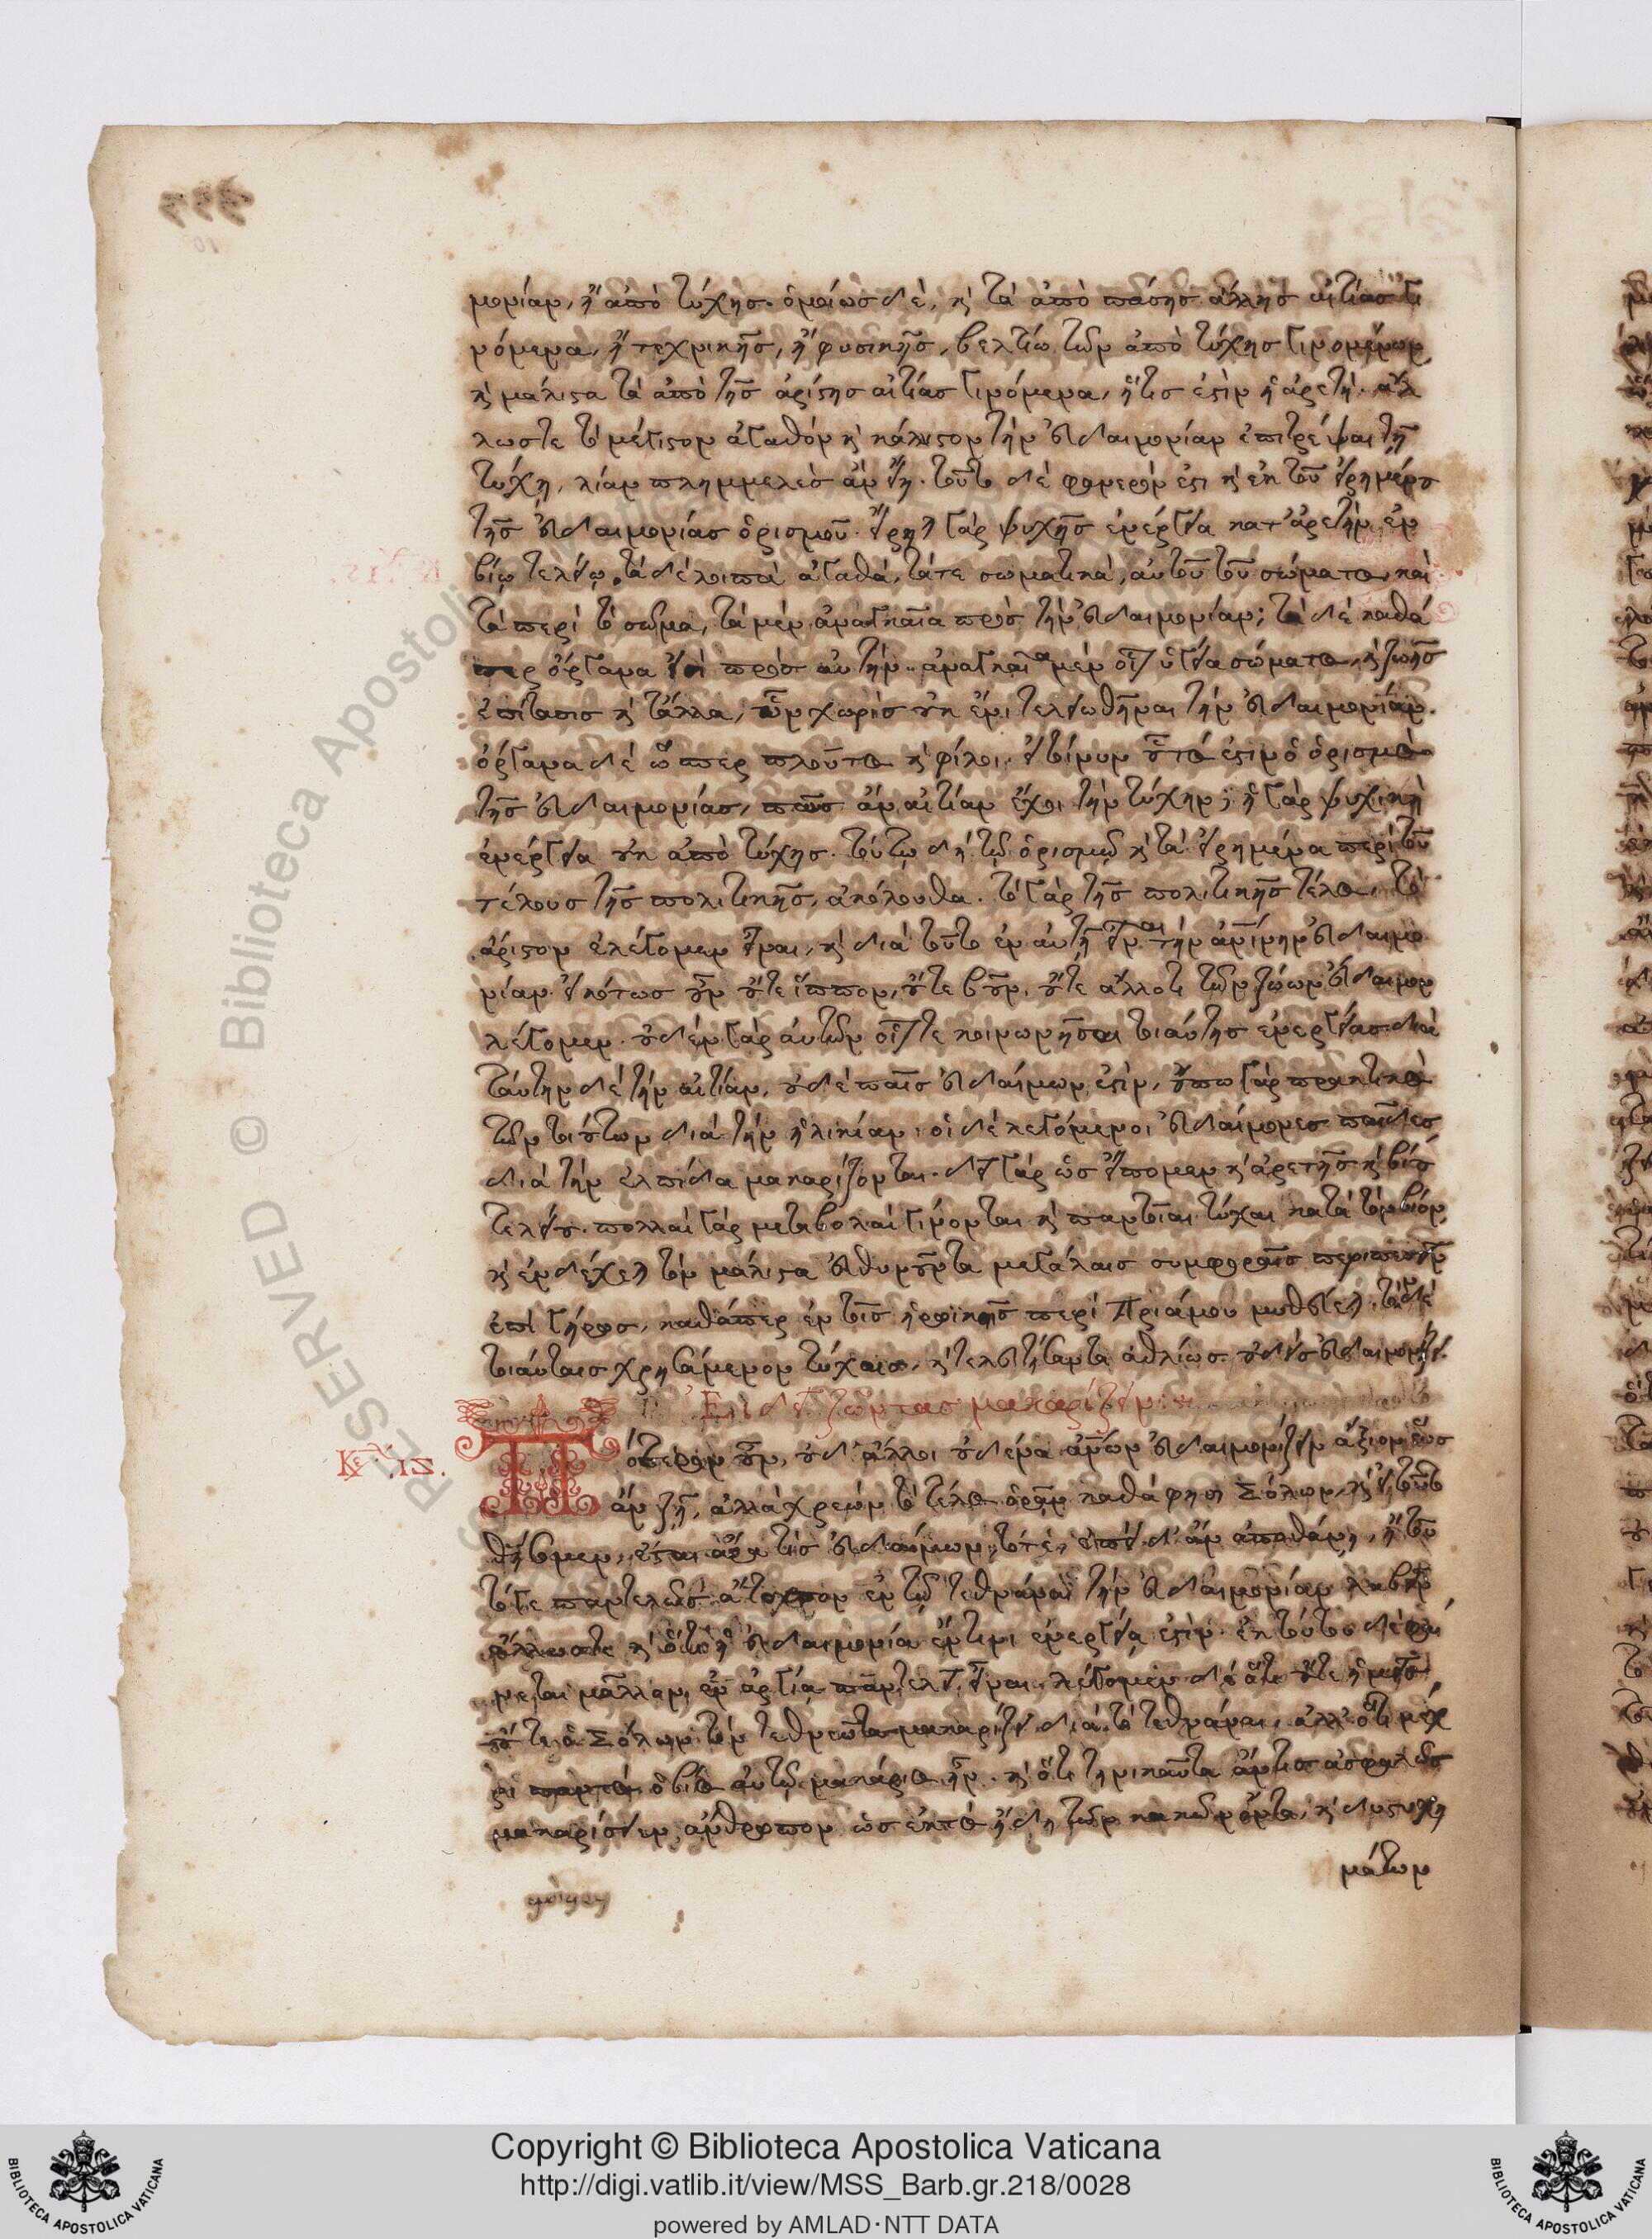 μονίαν, ἢ ἀπὸ τύχης. ὁμοίως δὲ, κ̀ τὰ ἀπὸ πάσης ἄλλης αἰτίας γι
νόμενα, ἢ τεχνικῆς, ἢ φυσικῆς, βελτίω τῶν ἀπὸ τύχης γινομένων
κ̀ μάλιστα τὰ ἀπὸ τῆς ἀρίστης αἰτίας γινόμενα, ἥτις ἐστὶν ἡ ἀρετὴ. ἄλ
λωστε τὸ μέγιστον ἀγαθόν κ̀ κάλιστον τὴν εὐδαιμονίαν ἐπιτρέψαι τῇ
τύχῃ, λίαν πλημμελὲς ἂν εἴη. τοῦτο δὲ φανερόν ἐστι κ̀ ἐκ τοῦ εἰρημένου
τῆς εὐδαιμονίας ὁρισμοῦ. εἴρηται γὰρ ψυχῆς ἐνέργεια κατ' ἀρετὴν ἐν
βίῳ τελείῳ. τὰ δὲ λοιπὰ ἀγαθὰ, τά τε σωματικὰ, αὐτοῦ τοῦ σώματος, καὶ
τὰ περὶ τὸ σῶμα, τὰ μὲν ἀναγκαῖα πρὸς τὴν εὐδαιμονίαν; τὰ δὲ καθά
περ ὄργανα εἰσὶ πρὸς αὐτήν. ἀναγκαῖα μὲν οἷον ὑγεία σώματος, κ̀ ζωῆς
ἐπίτασις κ̀ τἄλλα, ὧν χωρὶς οὐκ ἔνι τελειωθῆναι τὴν εὐδαιμονίαν.
ὄργανα δὲ ὥσπερ πλοῦτος κ̀ φίλοι. εἰ τοίνυν οὗτός ἐστιν ὁ ὁρισμὸς
τῆς εὐδαιμονίας, πῶς ἂν αἰτίαν ἔχοι τὴν τύχην; ἡ γὰρ ψυχικὴ
ἐνέργεια οὐκ ἀπὸ τύχης. τούτῳ δὴ τῷ ὁρισμῷ κ̀ τὰ εἰρημένα περὶ τοῦ
τέλους τῆς πολιτικῆς, ἀκόλουθα. τὸ γὰρ τῆς πολιτικῆς τέλος, τὸ
ἄριστον ἐλέγομεν εἶναι, κ̀ διὰ τοῦτο ἐν αὐτῇ εἶναι τὴν ἀνίνην εὐδαιμο
νίαν. εἰκότως οὖν οὔτε ἵππον, οὔτε βοῦν, οὔτε ἄλλο τι τῶν ζώων εὔδαιμον
λέγομεν. οὐδὲν γὰρ αὐτῶν οἷόν τε κοινωνῆσαι τοιαύτης ἐνεργείας. διὰ
ταύτην δὲ τὴν αἰτίαν, οὐδὲ παῖς εὐδαίμων ἐστὶν, οὔπω γὰρ πρακτικὸς
τῶν τοιούτων διὰ τὴν ἡλικίαν. οἱ δὲ λεγόμενοι εὐδαίμονες παῖδες
διὰ τὴν ἐλπίδα μακαρίζονται. δεῖ γὰρ ὡς εἴπομεν κ̀ ἀρετῆς κ̀ βίου
τελείου. πολλαὶ γὰρ μεταβολαὶ γίνονται κ̀ παντοῖαι τύχαι κατὰ τὸν βίον,
κ̀ ἐνδέχεται τὸν μάλιστα εὐθυνοῦντα μεγάλαις συμφοραῖς περιπεσεῖν
ἐπὶ γήρως, καθάπερ ἐν τοῖς ἡρωικοῖς περὶ Πριάμου μυθεύεται, τὸν δὲ
τοιαύταις χρησάμενον τύχαις, κ̀ τελευτήσαντα ἀθλίως οὐδεὶς εὐδαιμονίζει.
Εἰ δεῖ ζῶντας μακαρίζειν:+
Κε. ιζ.
Πότερον οὖν, οὐδ' ἄλλον οὐδένα ἀνων εὐδαιμονίζειν ἄξιον ἕως
ἂν ζῇ, ἀλλὰ χρεὼν τὸ τέλος ὁρᾶν καθά φησι Σόλων, κ̀ εἰ τοῦτο
θήσομεν, ἔσται ἄρα τις εὐδαίμων τότε, ἐπειδ' ἂν ἀποθάνῃ, ἢ τοῦ
τό γε παντελῶς ἄτοπον ἐν τῷ τεθνάναι τὴν εὐδαιμονίαν λαβεῖν
ἄλλωστε κ̀ ὅτι ἡ εὐδαιμονία ἔν τινι ἐνεργείᾳ ἐστὶν. ἐκ τούτου δὲ φαί
νεται μᾶλλον, ἐν ἀργίᾳ παντελεῖ εἶναι. λέγομεν δὲ ὅτι οὔτε ἡμεῖς
οὔτε ὁ Σόλων τὸν τεθνεῶτα μακαρίζει διὰ τὸ τεθνάναι, ἀλλ' ὅτι μέχ
ρι παντὸς ὁ βίος αὐτῷ μακάριος ἦν. κ̀ ὅτι τηνικαῦτα ἄν τις ἀσφαλῶς
μακαρίσειεν ἄνθρωπον ὡς ἐκτὸς ἤδη τῶν κακῶν ὄντα, κ̀ δυστυχη
μάτων
Copyright © Biblioteca Apostolica Vaticana
http://digi.vatlib.it/view/MSS_Barb.gr.218/0028
powered by AMLAD·NTT DATA